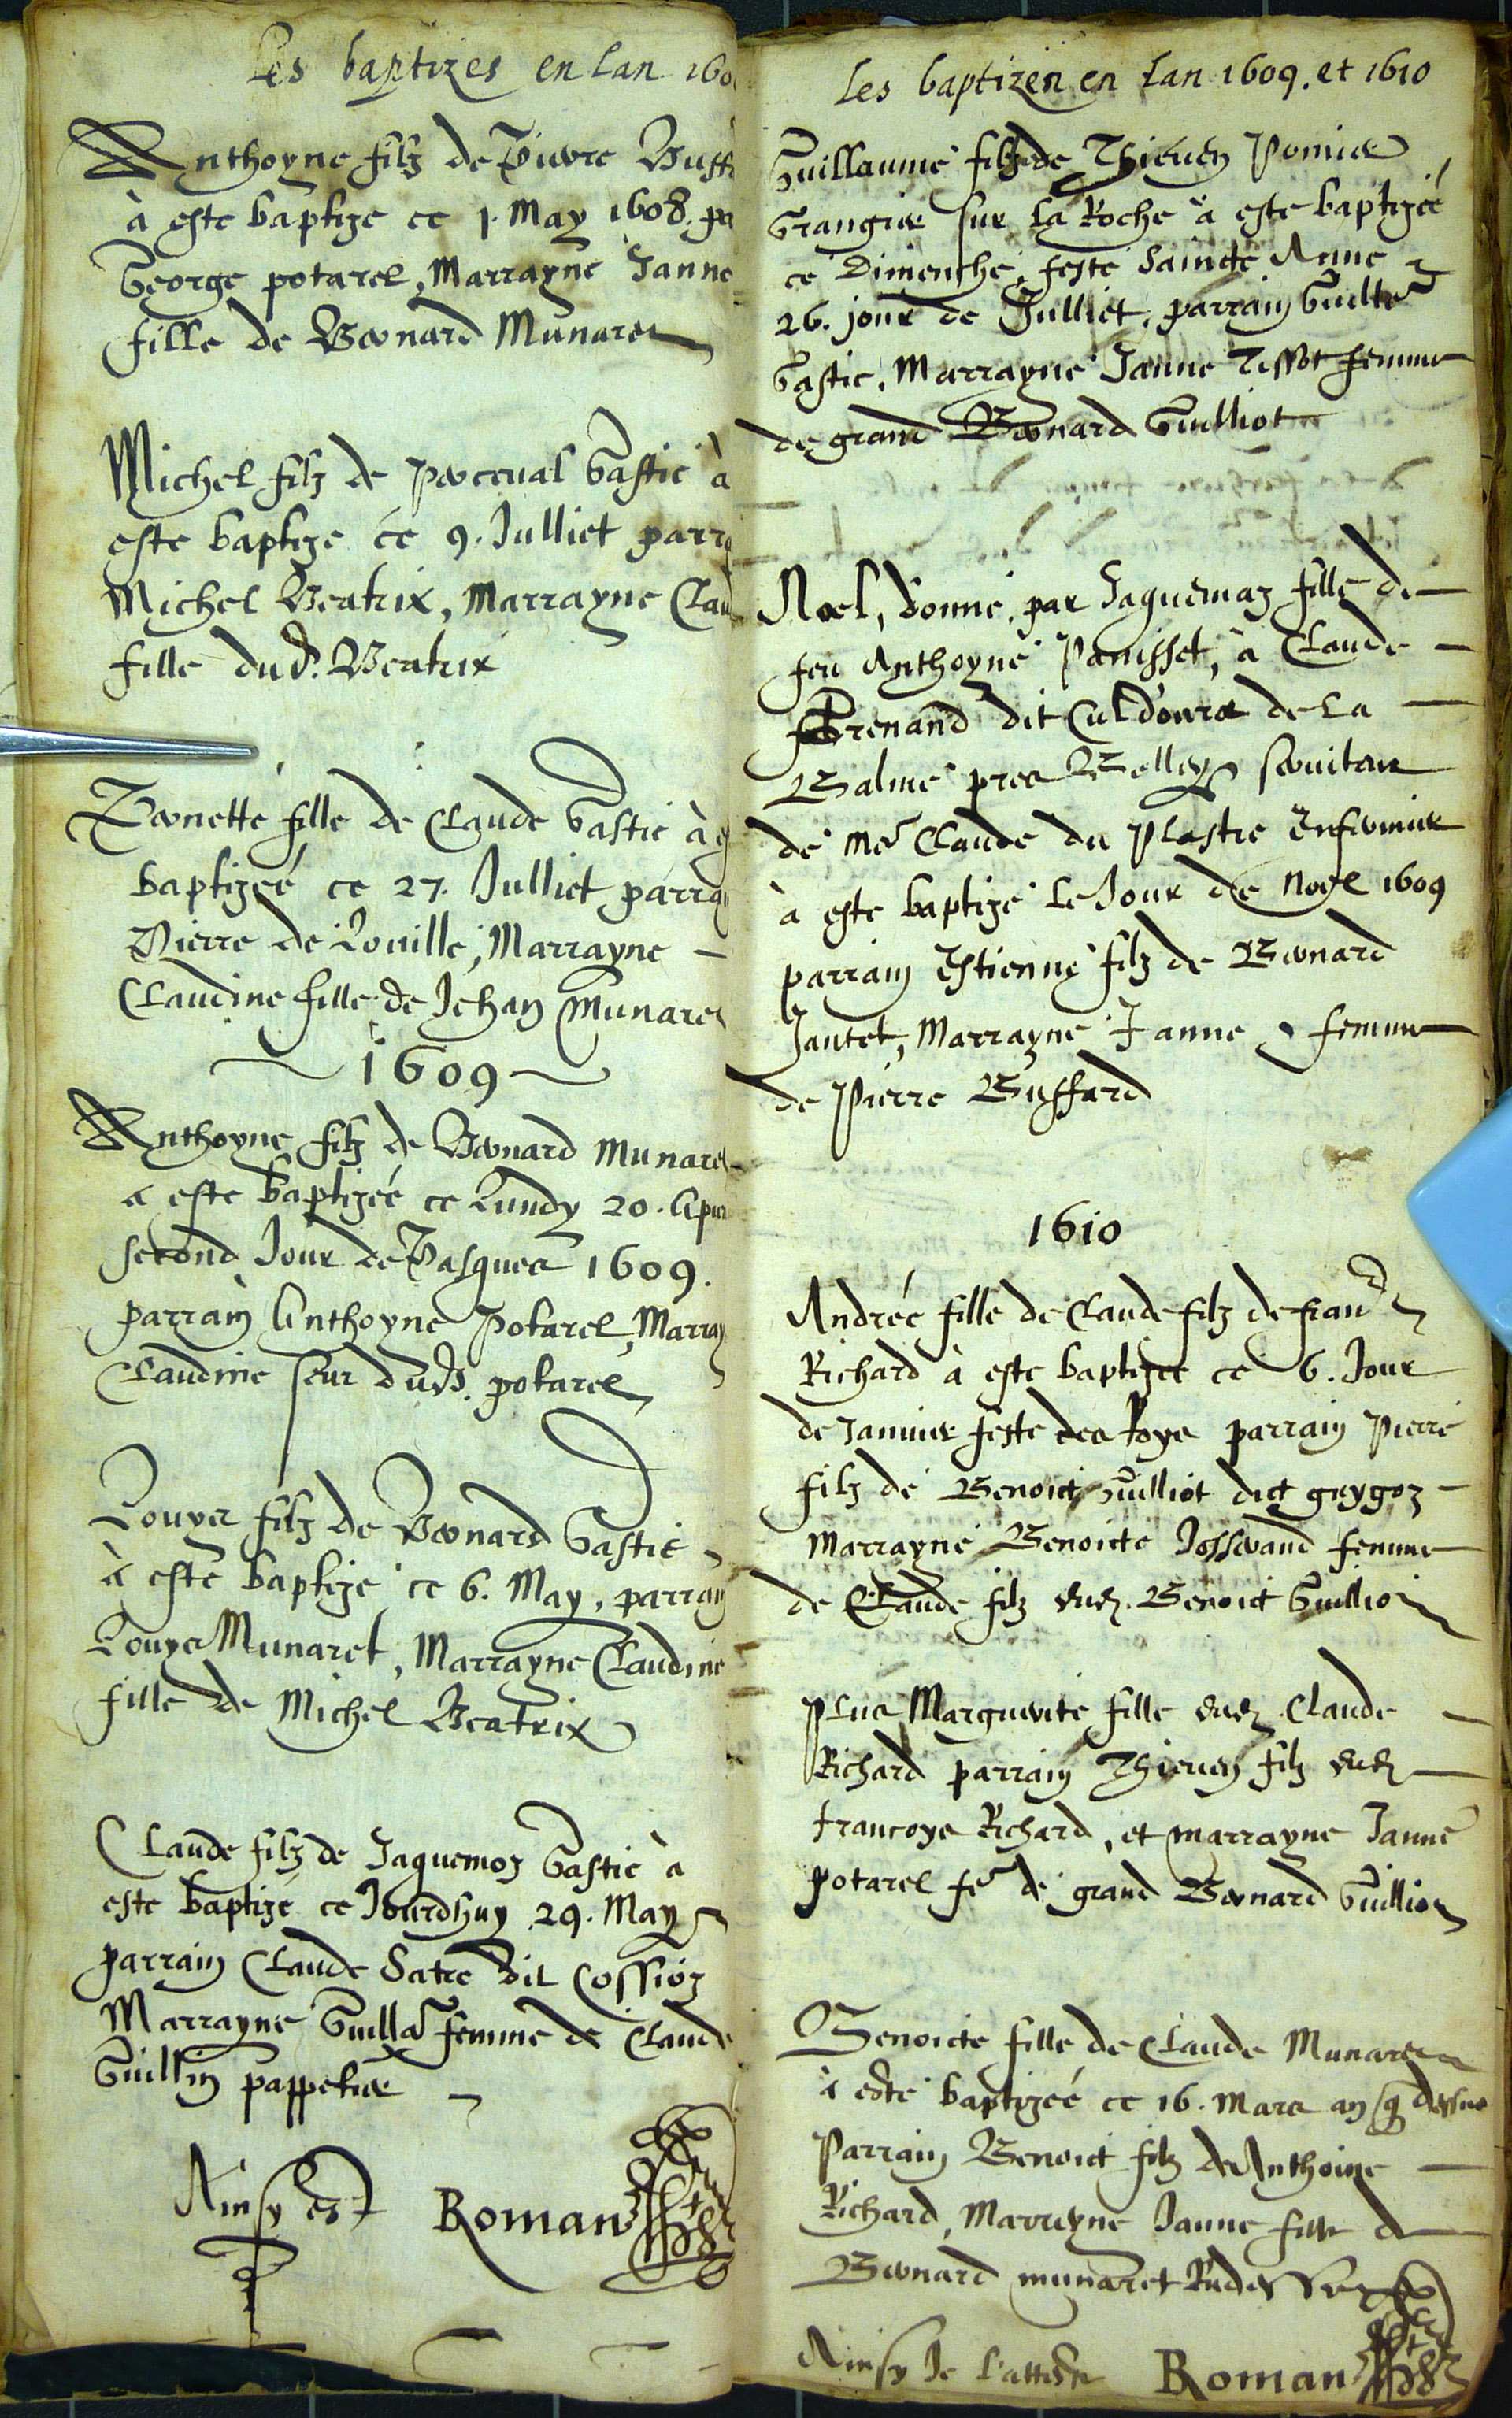 Les baptizes en lan 160
Anthoyne filz de Pierre Buff
à este baptize ce 1. May 1608. pa
George potarel, Marrayne Janne
fille de Bernard Munaret
Michel filz de Perceval Gastie à
este baptize ce 9. Julliet parra
Michel Beatrix, Marrayne Clau
fille dud. Beatrix
Bernette fille de Claude Gastie à e
baptizeé ce 27. Julliet parra
Pierre de Louille, Marrayne
Claudine fille de Jehan Munaret
1609
Anthoyne filz de Bernard Munaret
a este baptizeé ce Lundy 20. Apur
second Jour de Pasques 1609.
parrain Anthoyne Potarel, Marray
Claudine seur dud. potarel
Louys filz de Bernard Gastie
à este baptize ce 6. May, parrain
Louys Munaret, Marrayne Claudine
fille de Michel Beatrix
Claude filz de Jaquemoz Gastie à
este baptizé ce Jourdhuy 29. May
parrain Claude Satre dit Cossioz
Marrayne femme de Claude
Guillin pappetier
Ainsy est Roman
Les baptizen en lan 1609. et 1610
Guillaume filz de Thieven Pomier
Grangier sur la Roche à este baptizeé
ce Dimenche, feste Saincte Anne
26. jour de Julliet, parrain
Gastie, Marrayne Janne Tissot femme
de grand Bernard Guilliot
Noel, donné, par Jaquemaz fille de
feu Anthoyne Panisset, à Claude
Grenand dit Culdoura de La
Balme pres Belley serviteur
de Mer Claude du Plastre Enfermier
à este baptizé le Jour de Noel 1609
parrain Estienne filz de Bernard
Jantet, Marrayne Janne femme
de Pierre Buffard
1610
Andrée fille de Claude filz de
Richard à este baptizee ce 6. Jour
de Janvier feste des Roys parrain Pierre
filz de Benoict Guilliot dict guygoz
Marrayne Benoicte Josserand femme
de Claude filz dud. Benoict Guilliot
Plus Marguerite fille dud. Claude
Richard parrain Thieven filz dud.
Francoys Richard, et marrayne Janne
potarel fe de grand Bernard Guilliot
Benoicte fille de Claude Munaret
à esté baptizeé ce 16. Mars an q dessus
Parrain Benoict filz de Anthoine
Richard, Marreyne Janne fille de
Bernard munaret
Ainsy Je l'atteste Roman